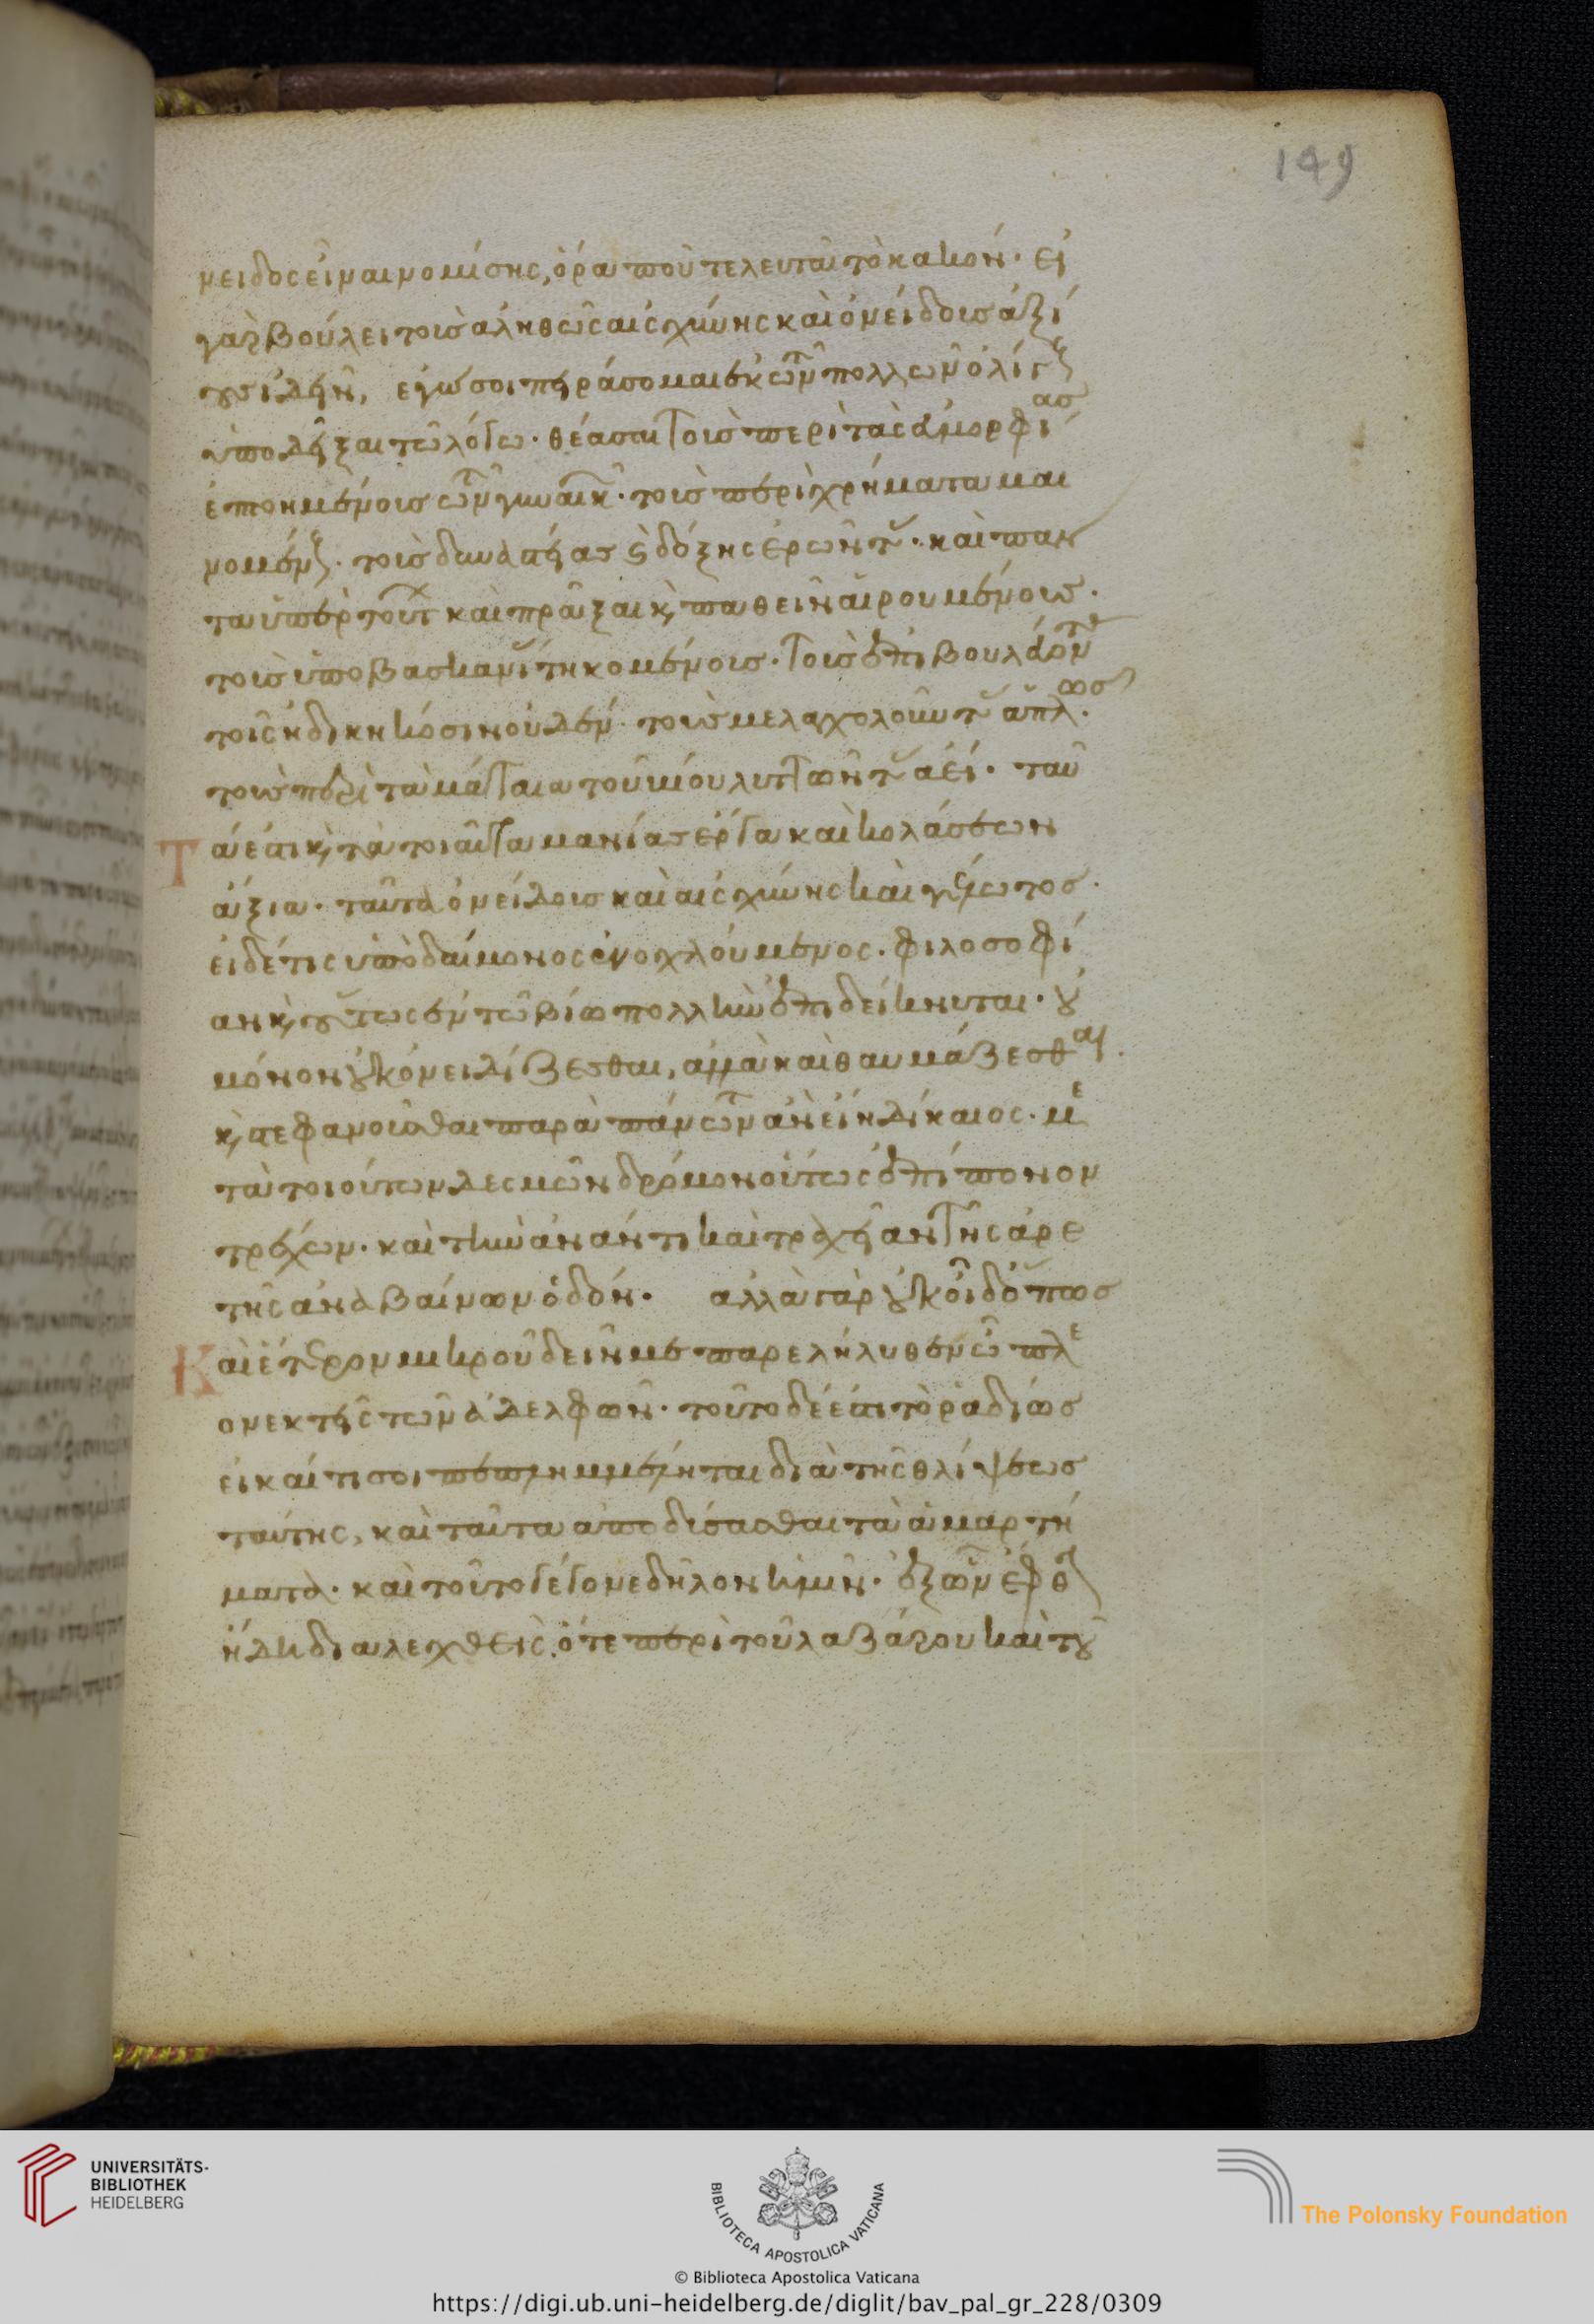 149
νειδος εἶναι νομίσης, ὅρα ποῦ τελευτᾶ τὸ κακόν· εἰ
γὰρ βούλει τοὺς ἀληθῶς αἰσχύνης καὶ ὀνείδους ἀξί
ους ἰδεῖν, ἐγώ σοι πειράσομαι ἐκ τῶν πολλῶν ὀλίγους
ὑποδεῖξαι τῶ λόγω· θέασαι τοὺς περὶ τὰς ἀμορφίας
ἐπτοημένους τῶν γυναικῶν· τοὺς περὶ χρήματα μαι
νομένους· τοὺς δυναστείας καὶ δόξης ἐρῶντας· καὶ πάν
τα ὑπὲρ τούτων καὶ πρᾶξαι καὶ παθεῖν αἱρουμένους·
τοὺς ὑπὸ βασκανίας τηκομένους· τοὺς ἐπιβουλεύοντας
τοῖς ἠδικηκόσιν οὐδέν· τοὺς μελαγχολοῦντας ἁπλῶς·
τοὺς περὶ τὰ μάταια τοῦ βίου λυττῶντας ἀεί· ταῦ
τά ἐστι καὶ τὰ τοιαῦτα μανίας ἔργα καὶ κολάσεων
ἄξια· ταῦτα ὀνείδους καὶ αἰσχύνης καὶ γέλωτος·
εἰ δέ τις ὑπὸ δαίμονος ἐνοχλούμενος· φιλοσοφί
αν καὶ οὕτως ἐν τῶ βίω πολλὴν ἐπιδείκνυται· οὐ
μόνον οὐκ ὀνειδίζεσθαι, ἀλλὰ καὶ θαυμάζεσθαι·
καὶ στεφανοῦσθαι παρὰ πάντων ἂν εἴη δίκαιος· με
τὰ τοιούτων δεσμῶν δρόμον οὕτως ἐπίπονον
τρέχων· καὶ τὴν ἀνάντη καὶ τραχεῖαν τῆς ἀρε
τῆς ἀναβαίνων ὁδόν· ἀλλὰ γὰρ οὐκ οἶδ' ὅπως
καὶ ἕτερον μικροῦ δεῖν με παρελήλυθεν ὧ πλε
ονεκτεῖς τῶν ἀδελφῶν· τοῦτο δέ ἐστι τὸ ῥαδίως
εἰ καί τί σοι πεπλημμέληται διὰ τῆς θλίψεως
ταύτης, καὶ ταῦτα ἀποδύσασθαι τὰ ἁμαρτή
ματα· καὶ τοῦτο γέγονε δῆλον ἡμῖν· ἐξ ὧν ἔμπροσθεν
ἤδη διαλεχθεὶς, ὅτε περὶ τοῦ λαζάρου καὶ τοῦ
UNIVERSITÄTS-
BIBLIOTHEK
HEIDELBERG
BIBLIOTECA APOSTOLICA VATICANA
© Biblioteca Apostolica Vaticana
The Polonsky Foundation
https://digi.ub.uni-heidelberg.de/diglit/bav_pal_gr_228/0309